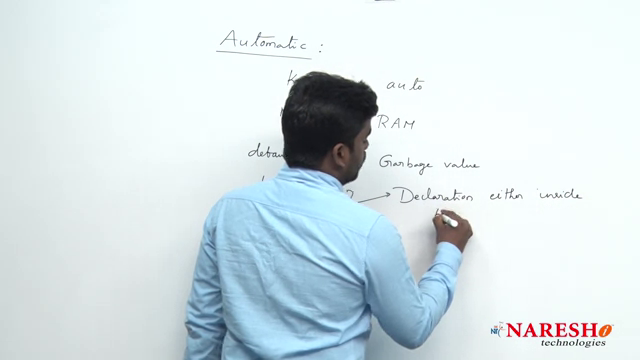 Automatic :
auto
RAM
Garbage value
Declaration either inside
NARESH i
technologies